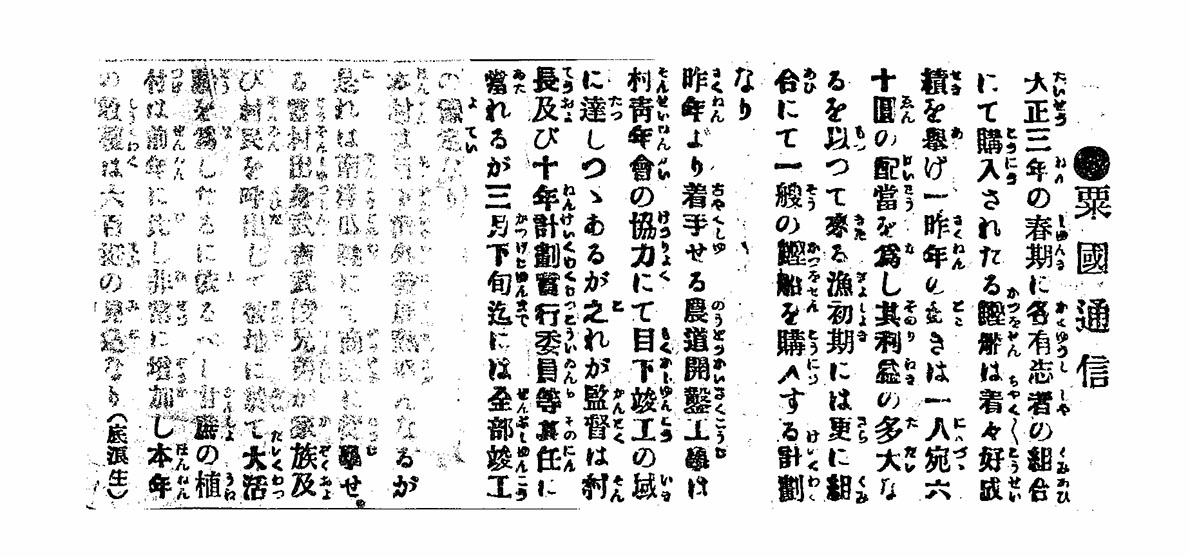 ●粟國通信
大正三年の春期に各有志者の組合
にて購入されたる鰹船は着々好成
績を擧げ一昨年の きは一人宛六
十圓の配當を爲し其利益の多大な
るを以つて來る漁初期には更に組
合にて一艘の鰹船を購入する計劃
なり
昨年より着手せる農道開鑿工事は
村靑年會の協力にて目下竣工の域
に達しつゝあるが之れが監督は村
長及び十年計劃實行委員等其任に
當れるが三月下旬迄には全部竣工
の豫定なり
本村は目下海外 なるが
是れは南洋 に せ
る當村出身武 兄弟が家族及
び村民を呼出して彼地に於て大活
動を爲したるに依るべし甘蔗の植
付は前年に比し非常に增加し本年
の は六百 の見込なり(底浪生)